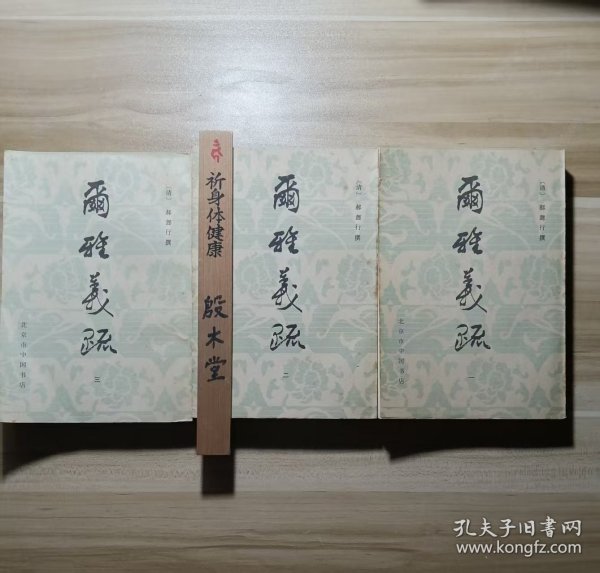 爾雅義疏
〔清〕郝懿行撰
一
北京市中国书店
爾雅義疏
〔清〕郝懿行撰
二
祈身体健康
殷木堂
爾雅義疏
〔清〕郝懿行撰
三
北京市中国书店
孔夫子旧书网
www.kongfz.com